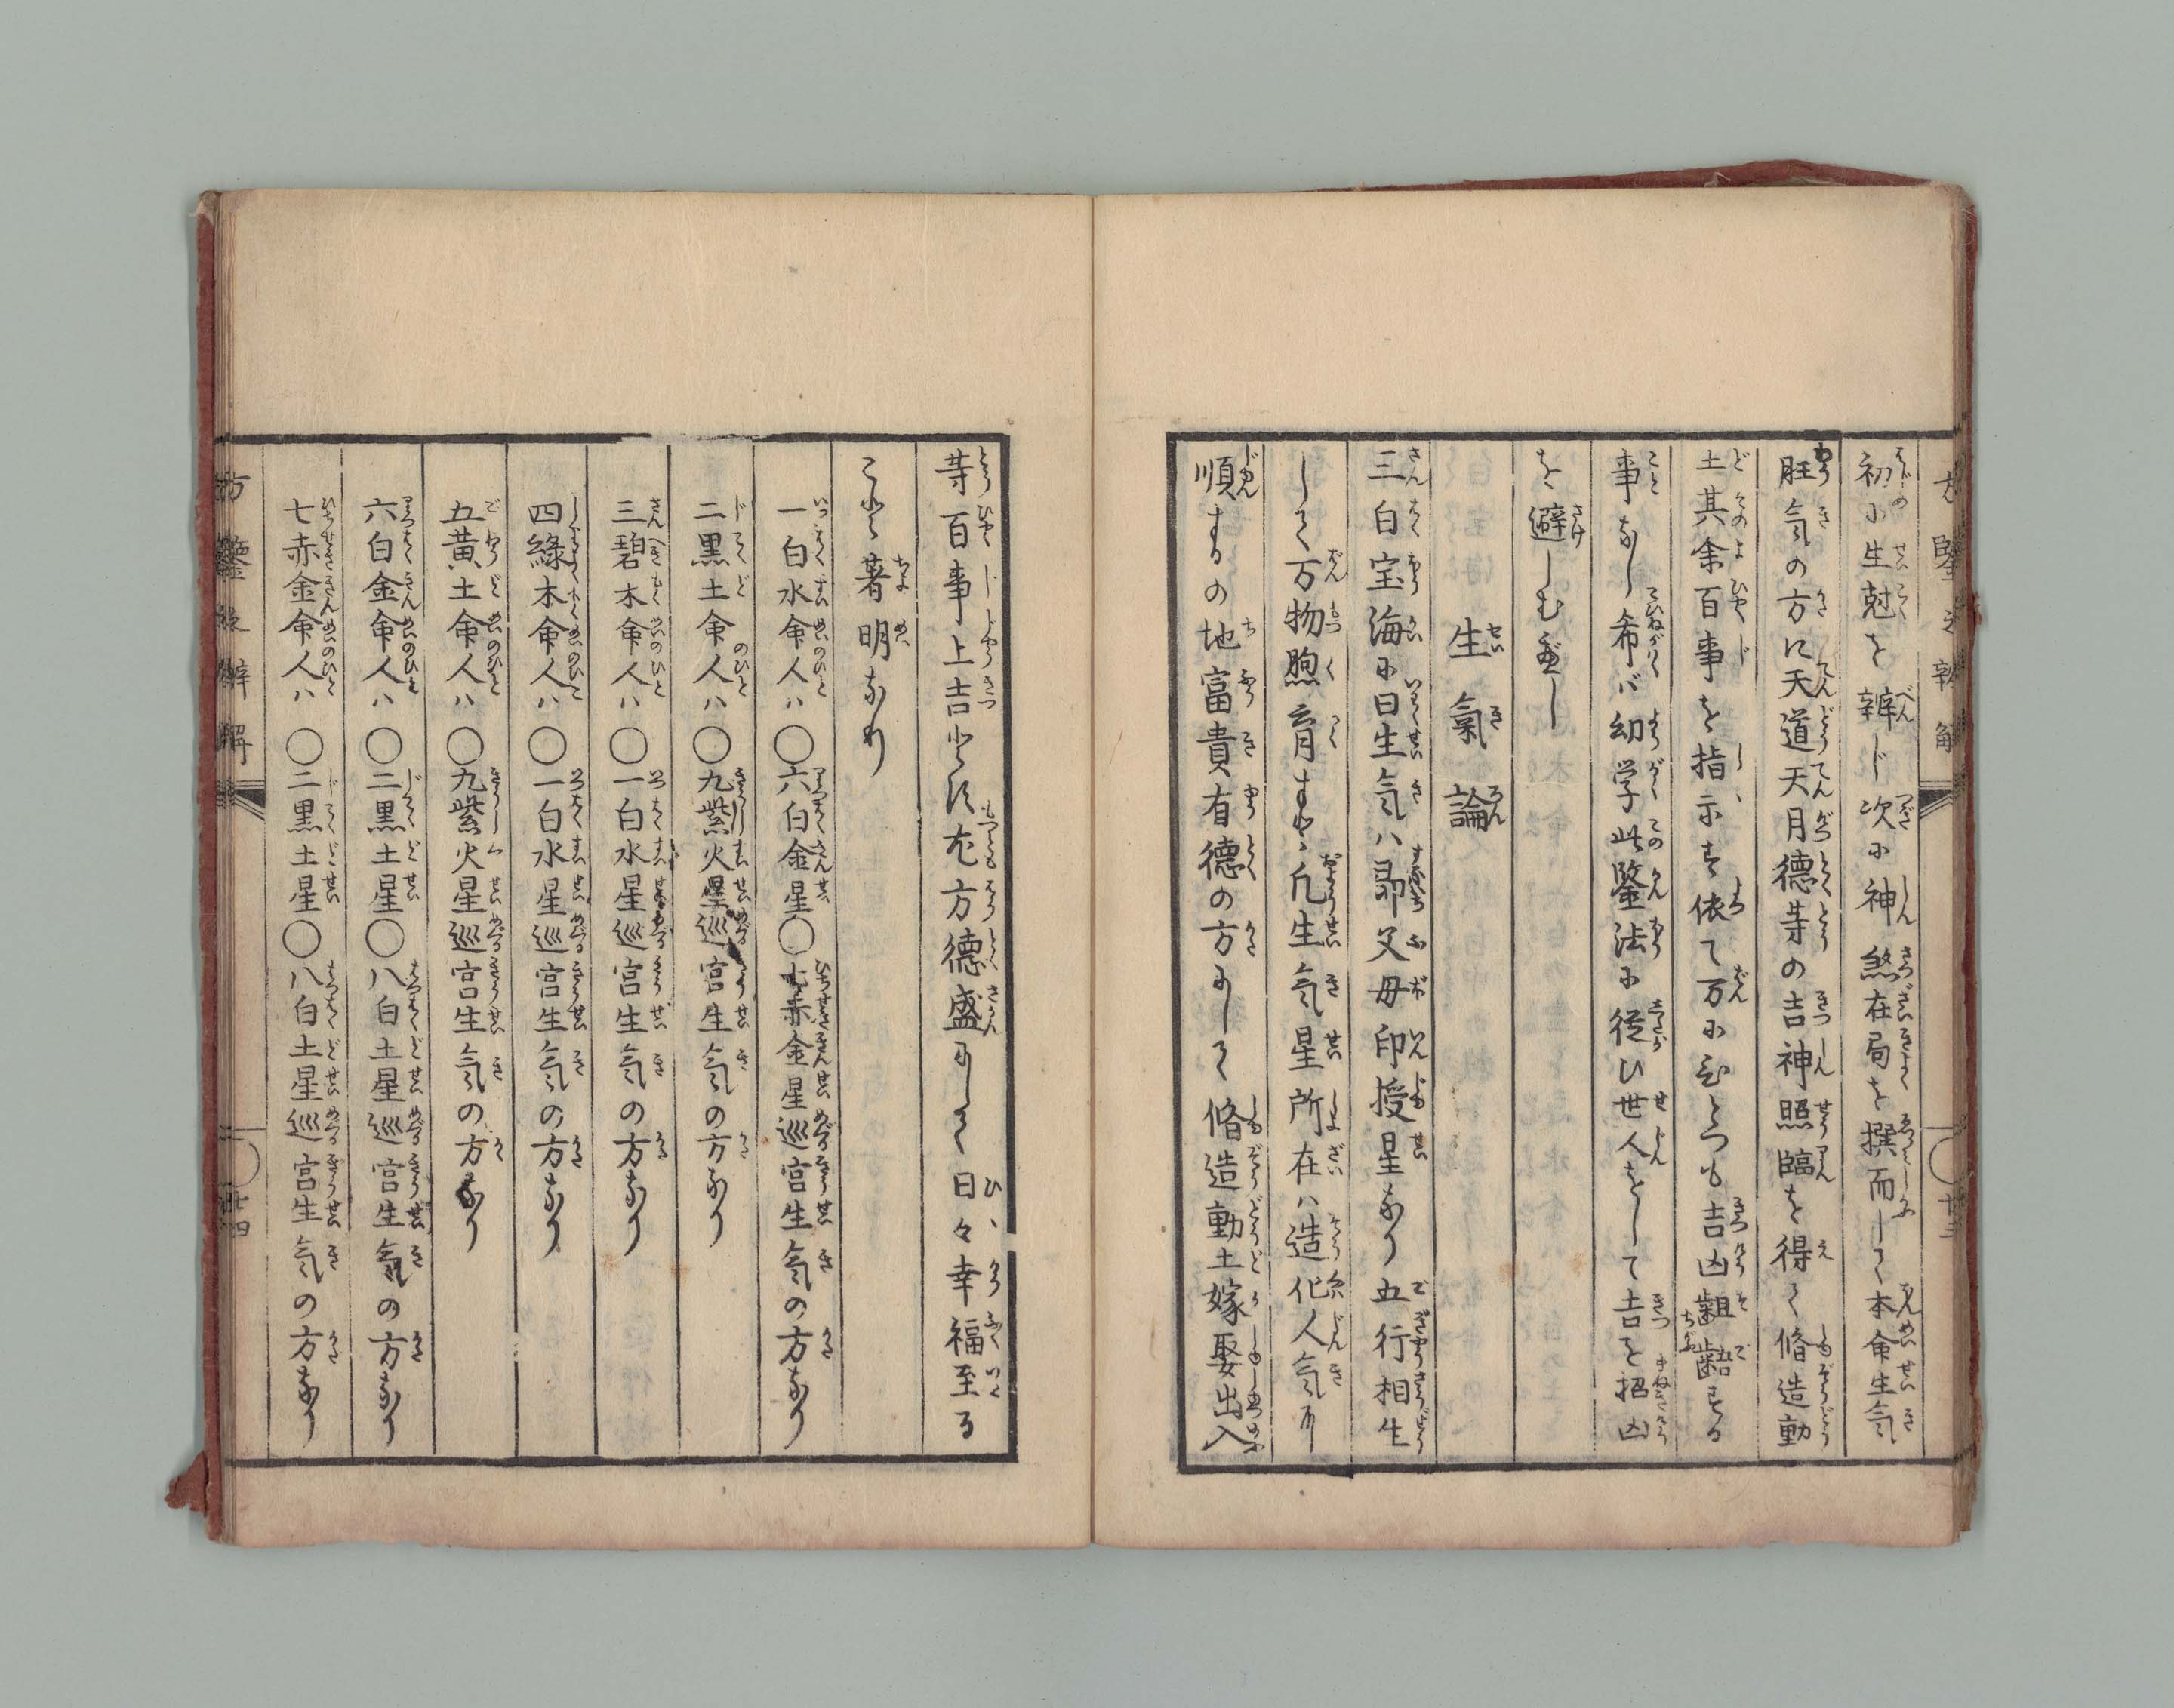 初に生尅を辨じ次に神煞在局を撰而して本命生気
旺気の方に天道天月徳等の吉神照臨を得て脩造動
土其余百事を指示す依て万に一つも吉凶齟齬する
事なし希バ幼学此鑒法に従ひ世人をして吉を招凶
を避しむべし
生氣論
三白宝海に曰生気ハ即父母印授星なり五行相生
して万物煦育す凡生気星所在ハ造化人気に
順するの地富貴有徳の方にして脩造動土嫁娶出入
等百事上吉とす尤方徳盛にして日々幸福至る
こと著明なり
一白水命人ハ〇六白金星〇七赤金星巡宮生気の方なり
二黒土命人ハ〇九紫火星巡宮生気の方なり
三碧木命人ハ〇一白水星巡宮生気の方なり
四緑木命人ハ〇一白水星巡宮生気の方なり
五黄土命人ハ〇九紫火星巡宮生気の方なり
六白金命人ハ〇二黒土星〇八白土星巡宮生気の方なり
七赤金命人ハ〇二黒土星〇八白土星巡宮生気の方なり
方鑒 辨解 〇廿四